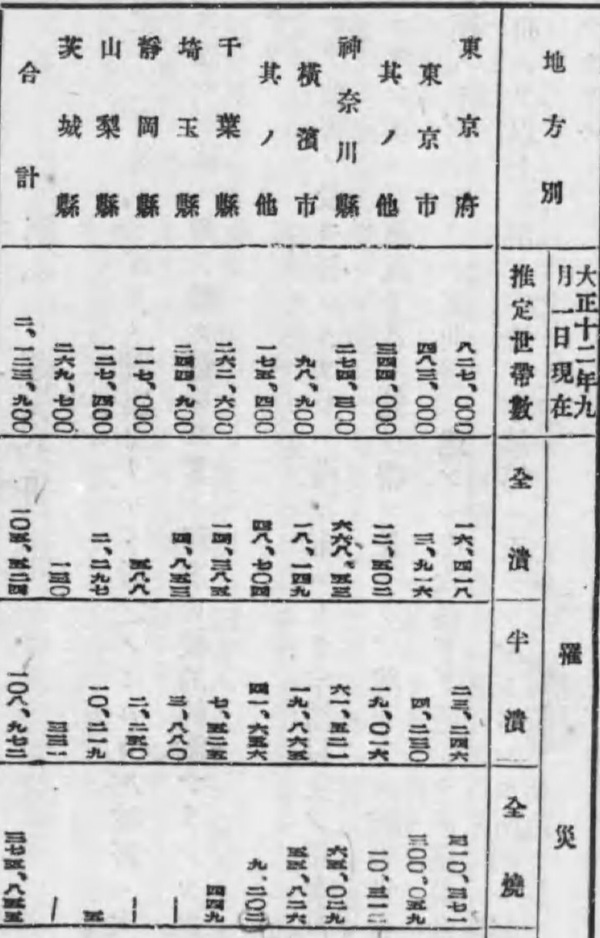 地方別
大正十二年九月一日現在
推定世帶數
罹災
全潰
半潰
全燒
東京府 八二七、〇〇〇 一六、四一八 二三、二四六 三一〇、三七一
東京市 四八三、〇〇〇 三、九一六 四、二三〇 三〇〇、〇五九
其ノ他 三四四、〇〇〇 一二、五〇二 一九、〇一六 一〇、三一二
神奈川縣 二七四、三〇〇 六六八、五三 六一、五二一 六五、〇二九
橫濱市 九八、九〇〇 一八、一四九 一九、八六五 五五、八二六
其ノ他 一七五、四〇〇 四八、七〇四 四一、六五六 九、二〇三
千葉縣 二六二、六〇〇 一四、三八五 七、五二五 四四九
埼玉縣 二四四、九〇〇 四、八五三 三、八八〇 ―
靜岡縣 一一七、〇〇〇 五八八 二、二五〇 ―
山梨縣 一二七、四〇〇 二、二九七 一〇、二一九 五
茨城縣 二六九、七〇〇 一三〇 三三一 ―
合計 二、一二三、九〇〇 一〇五、五二四 一〇八、九七二 三七五、八五五